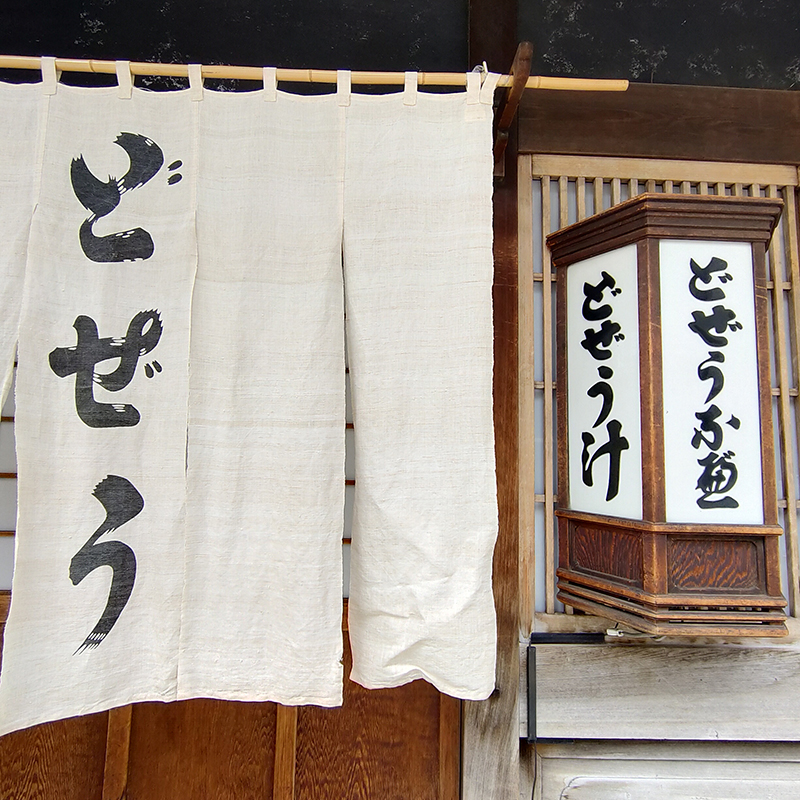 どぜう
どぜうなべ
どぜう汁